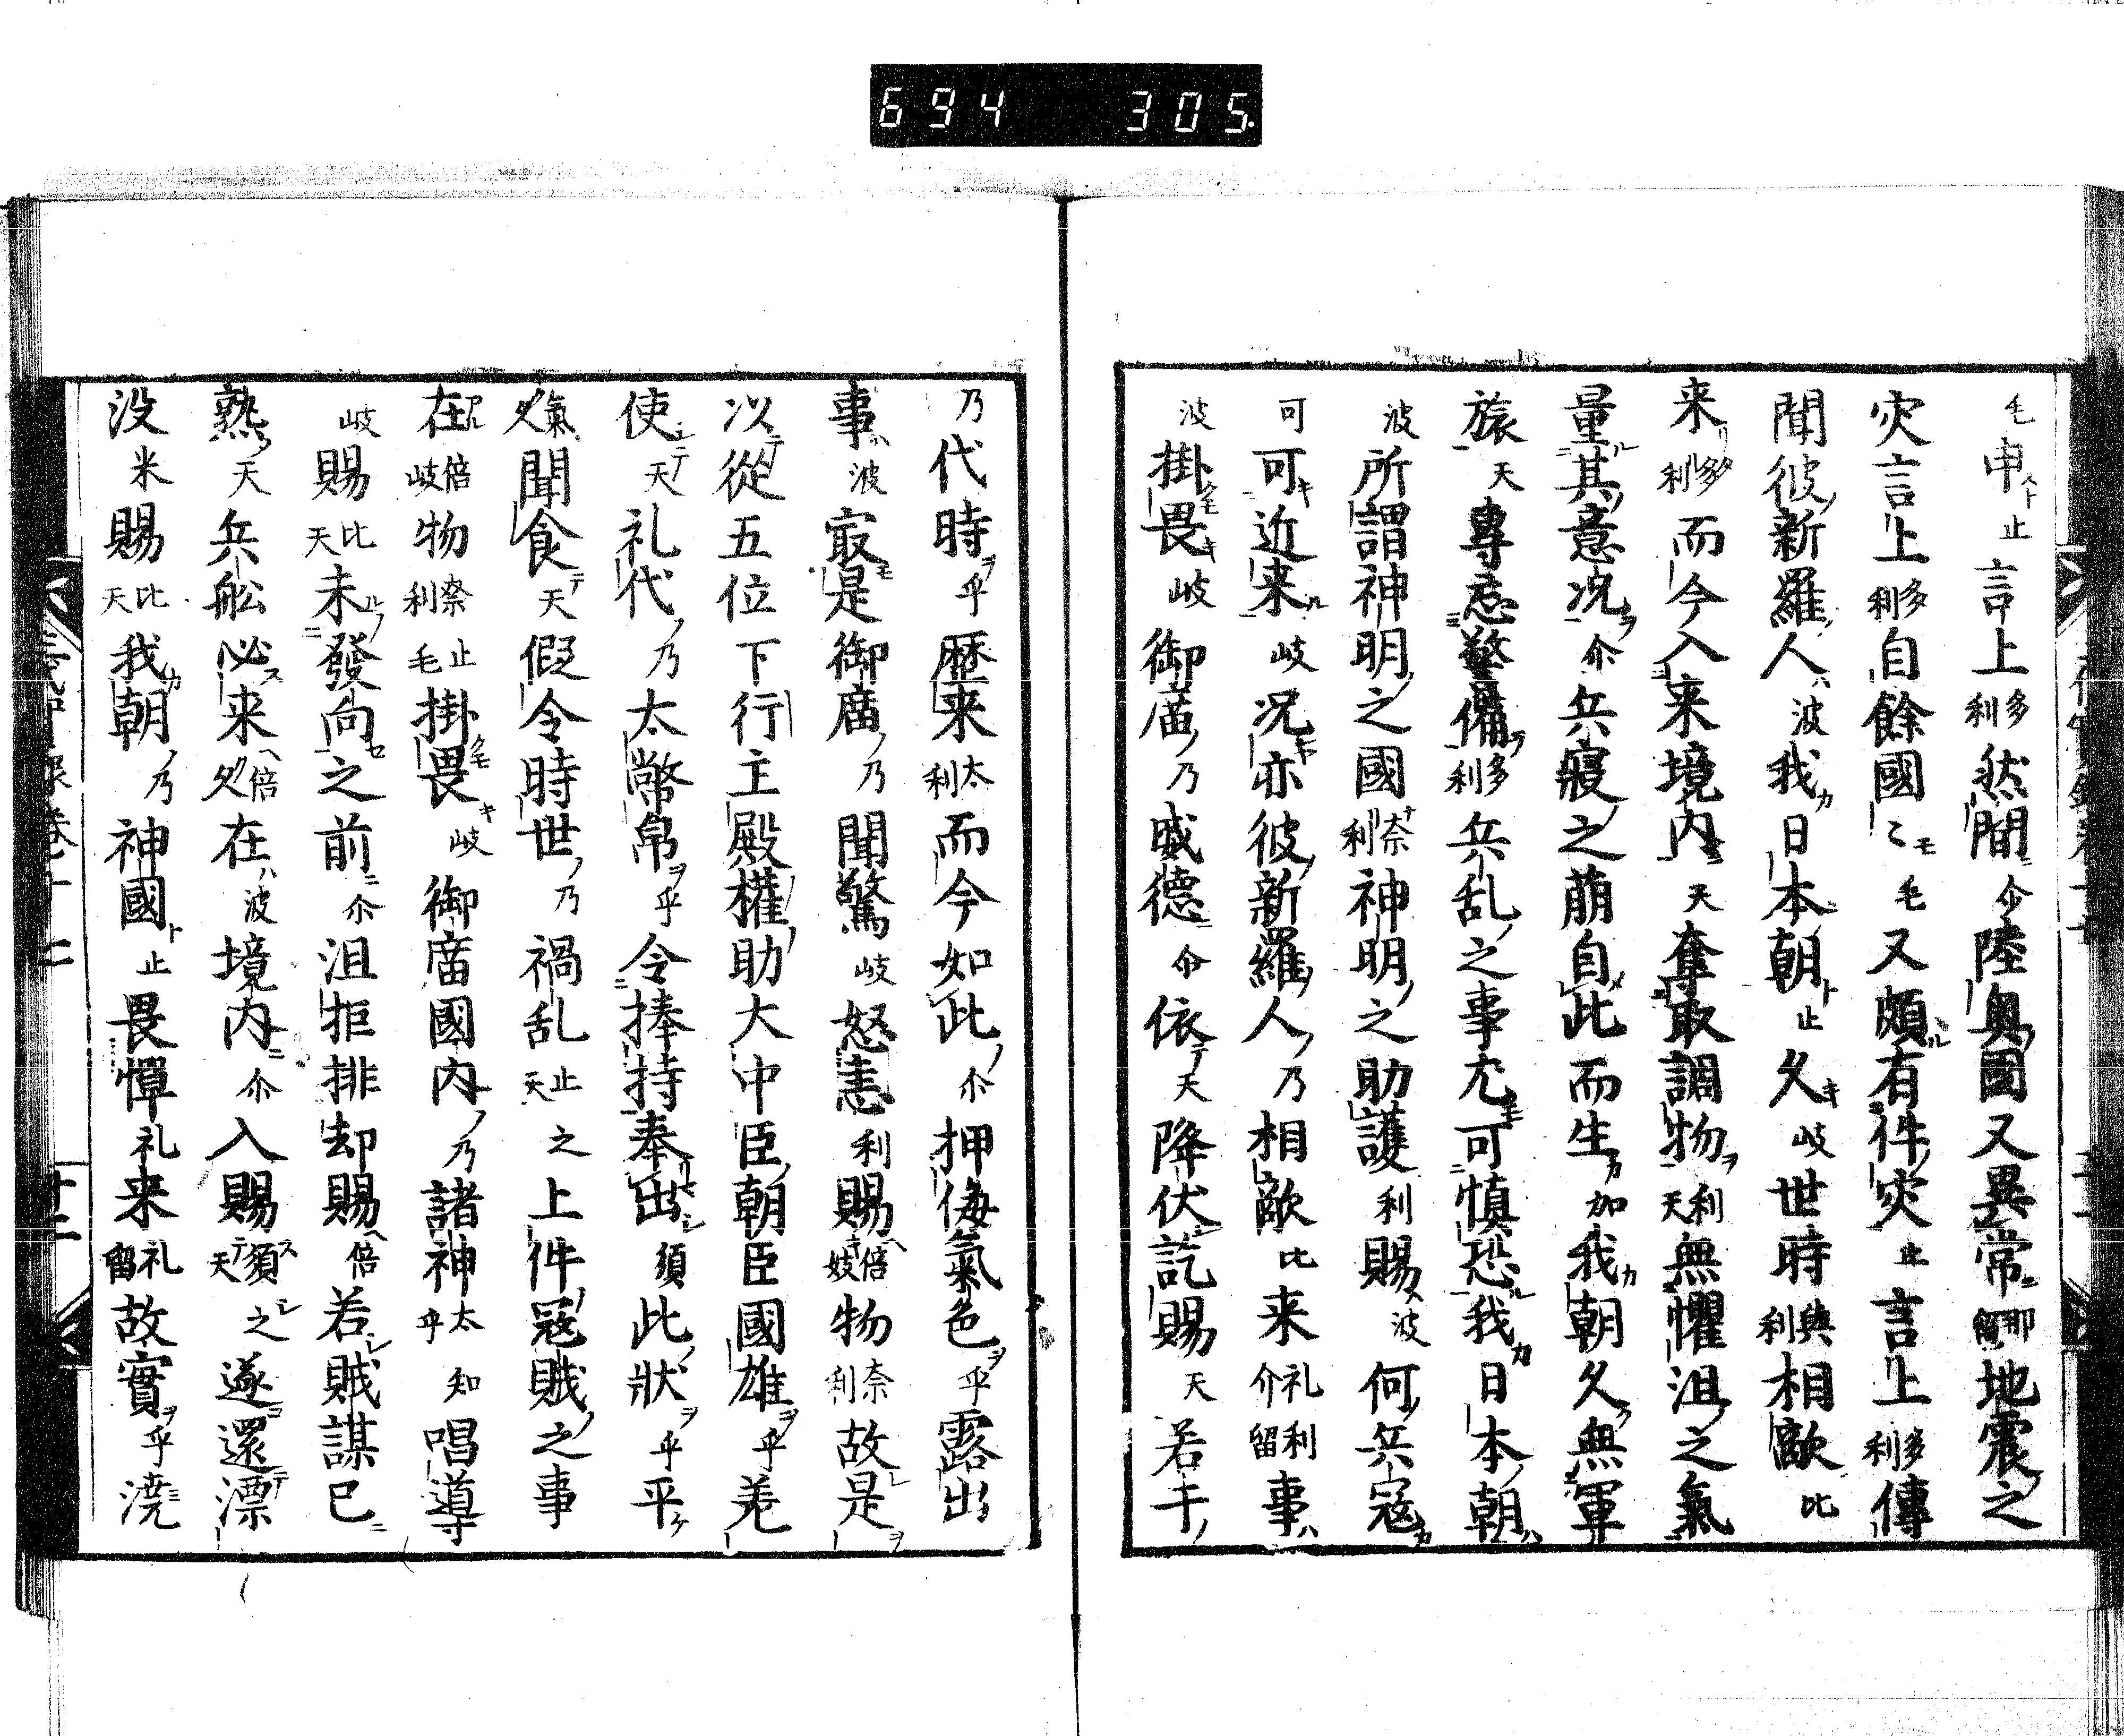 694 305.
毛申ス止言上多利然間尓陸奥國又異常那留地震之
灾言上多利自餘國〻毛又頗有件灾止言上多利傳
聞彼新羅人波我日本朝止久岐世時與利相敵比
来多利而今入来境内天奪取調物利天無懼沮之氣
量其意况尓兵寇之萠自此而生加我朝久無軍
旅天專忘警備多利兵乱之事尤可慎恐我日本朝
波所謂神明之國奈利神明之助護利賜波何兵寇
可可近来岐况亦彼新羅人乃相敵比来礼留事
波掛畏岐御廟乃威德尓依天降伏訖賜天若干
乃代時乎歴来太利而今如此尓押侮氣色乎露出
事波㝡是御廟乃聞驚岐怒恚利賜倍岐物奈利故是
以從五位下行主殿權助大中臣朝臣國雄乎差
使天礼代乃太幣帛乎令捧持奉出須此狀乎平
久聞食天假令時世乃禍乱止天之上件寇賊之事
在倍岐物奈利止毛掛畏岐御廟國内乃諸神太知乎唱導
岐賜比天未發向之前尓沮拒排却賜倍若賊謀已
熟天兵舩必来倍久在波境内尓入賜須天之遂還漂
没米賜比天我朝乃神國止畏憚礼来礼留故實乎澆